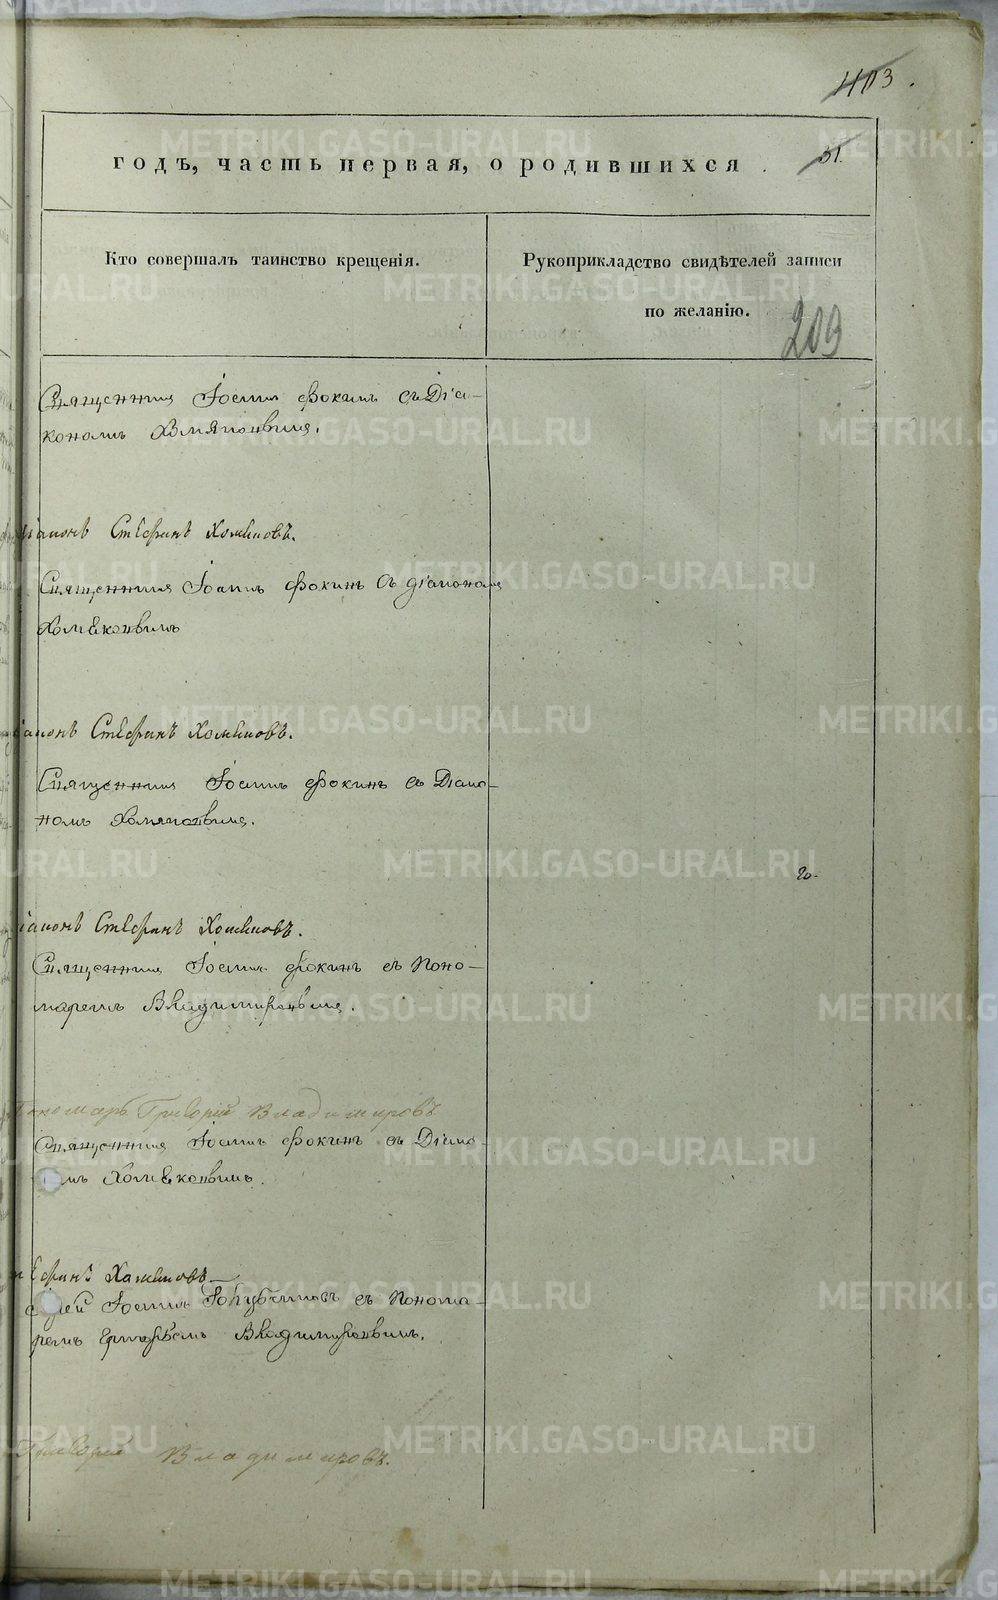 403.
годъ, часть первая, о родившихся
31.
Кто совершалъ таинство крещенія.
Рукоприкладство свидѣтелей записи
по желанію.
209
Священникъ Іоаннъ Фокинъ съ Діа-
кономъ
діаконъ Стефанъ Хомяковъ.
Священникъ Іоаннъ Фокинъ съ діакономъ
Хомяковымъ
діаконъ Стефанъ Хомяковъ.
Священникъ Іоаннъ Фокинъ съ Діако-
номъ Хомяковымъ.
діаконъ Стефанъ Хомяковъ.
Священникъ Іоаннъ Фокинъ съ Поно-
маремъ Владимировымъ.
Пономарь Григорій Владимировъ
Священникъ Іоаннъ Фокинъ съ Діако-
мъ Хомяковымъ.
Хомяковъ
Іоаннъ съ Понома-
ремъ Владимировымъ.
Григорій Владимировъ.
METRIKI.GASO-URAL.RU